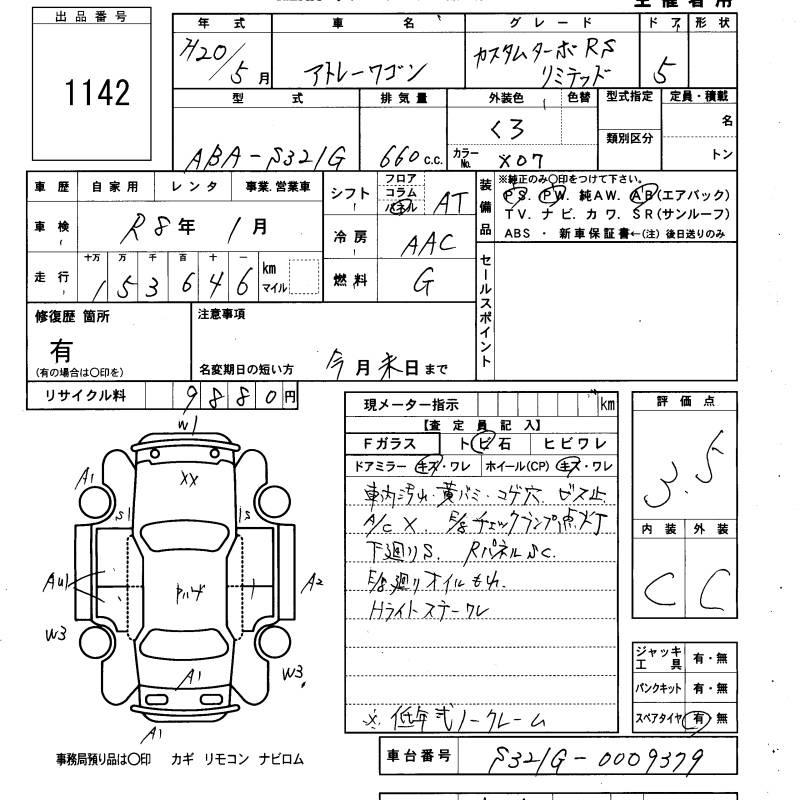 主催者用
出品番号
1142
年式 車名 グレード ドア 形状
H20/5月 アトレーワゴン カスタムターボRS リミテッド 5
型式 排気量 外装色 色替 型式指定 定員・積載
ABA-S321G 660c.c. くろ 類別区分 名
カラーNo. X07 トン
車歴 自家用 レンタ 事業.営業車
車検 R8年1月
走行 十万 万 千 百 十 一
153646 km マイル
シフト フロア コラム パネル AT
冷房 AAC
燃料 G
装備品 ※純正のみ〇印をつけて下さい。
PS. PW. 純AW. AB(エアバック)
TV. ナビ. カワ. SR(サンルーフ)
ABS ・ 新車保証書←(注)後日送りのみ
セールスポイント
修復歴 箇所
有
(有の場合は〇印を)
注意事項
名変期日の短い方 今月末日まで
リサイクル料 9880円
現メーター指示 km
【査定員記入】
Fガラス トビ石 ヒビワレ
ドアミラー キズ・ワレ ホイール(CP) キズ・ワレ
車内汚れ・黄バミ・コゲ穴 ビス止
A/C X. E/g チェックランプ点灯
下廻りS. Rパネルsc.
E/g廻りオイルもれ.
Hライトステーワレ
※ 低年式ノークレーム
評価点
3.5
内装 外装
C C
ジャッキ工具 有・無
パンクキット 有・無
スペアタイヤ 有・無
W1
XX
A1
S1
S
A2
W3
W3
A1
A1
事務局預り品は〇印 カギ リモコン ナビロム
車台番号 S321G-0009379